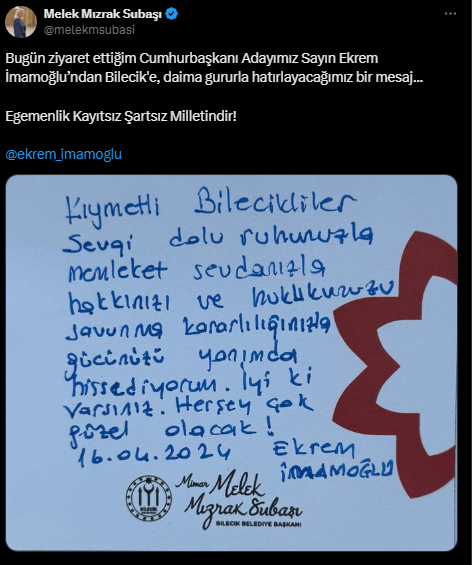 Melek Mızrak Subaşı
@melekmsubasi
Bugün ziyaret ettiğim Cumhurbaşkanı Adayımız Sayın Ekrem
İmamoğlu'ndan Bilecik'e, daima gururla hatırlayacağımız bir mesaj...
Egemenlik Kayıtsız Şartsız Milletindir!
@ekrem_imamoglu
Kıymetli Bilecikliler
Sevgi dolu ruhunuzla
memleket sevdanızla
hakkınızı ve hukukunuzu
savunma kararlılığınızla
gücünüzü yanımda
hissediyorum. İyi ki
varsınız. Herşey çok
güzel olacak!
16.04.2024 Ekrem
İMAMOĞLU
BİLECİK
Mimar Melek
Mızrak Subaşı
BİLECİK BELEDİYE BAŞKANI